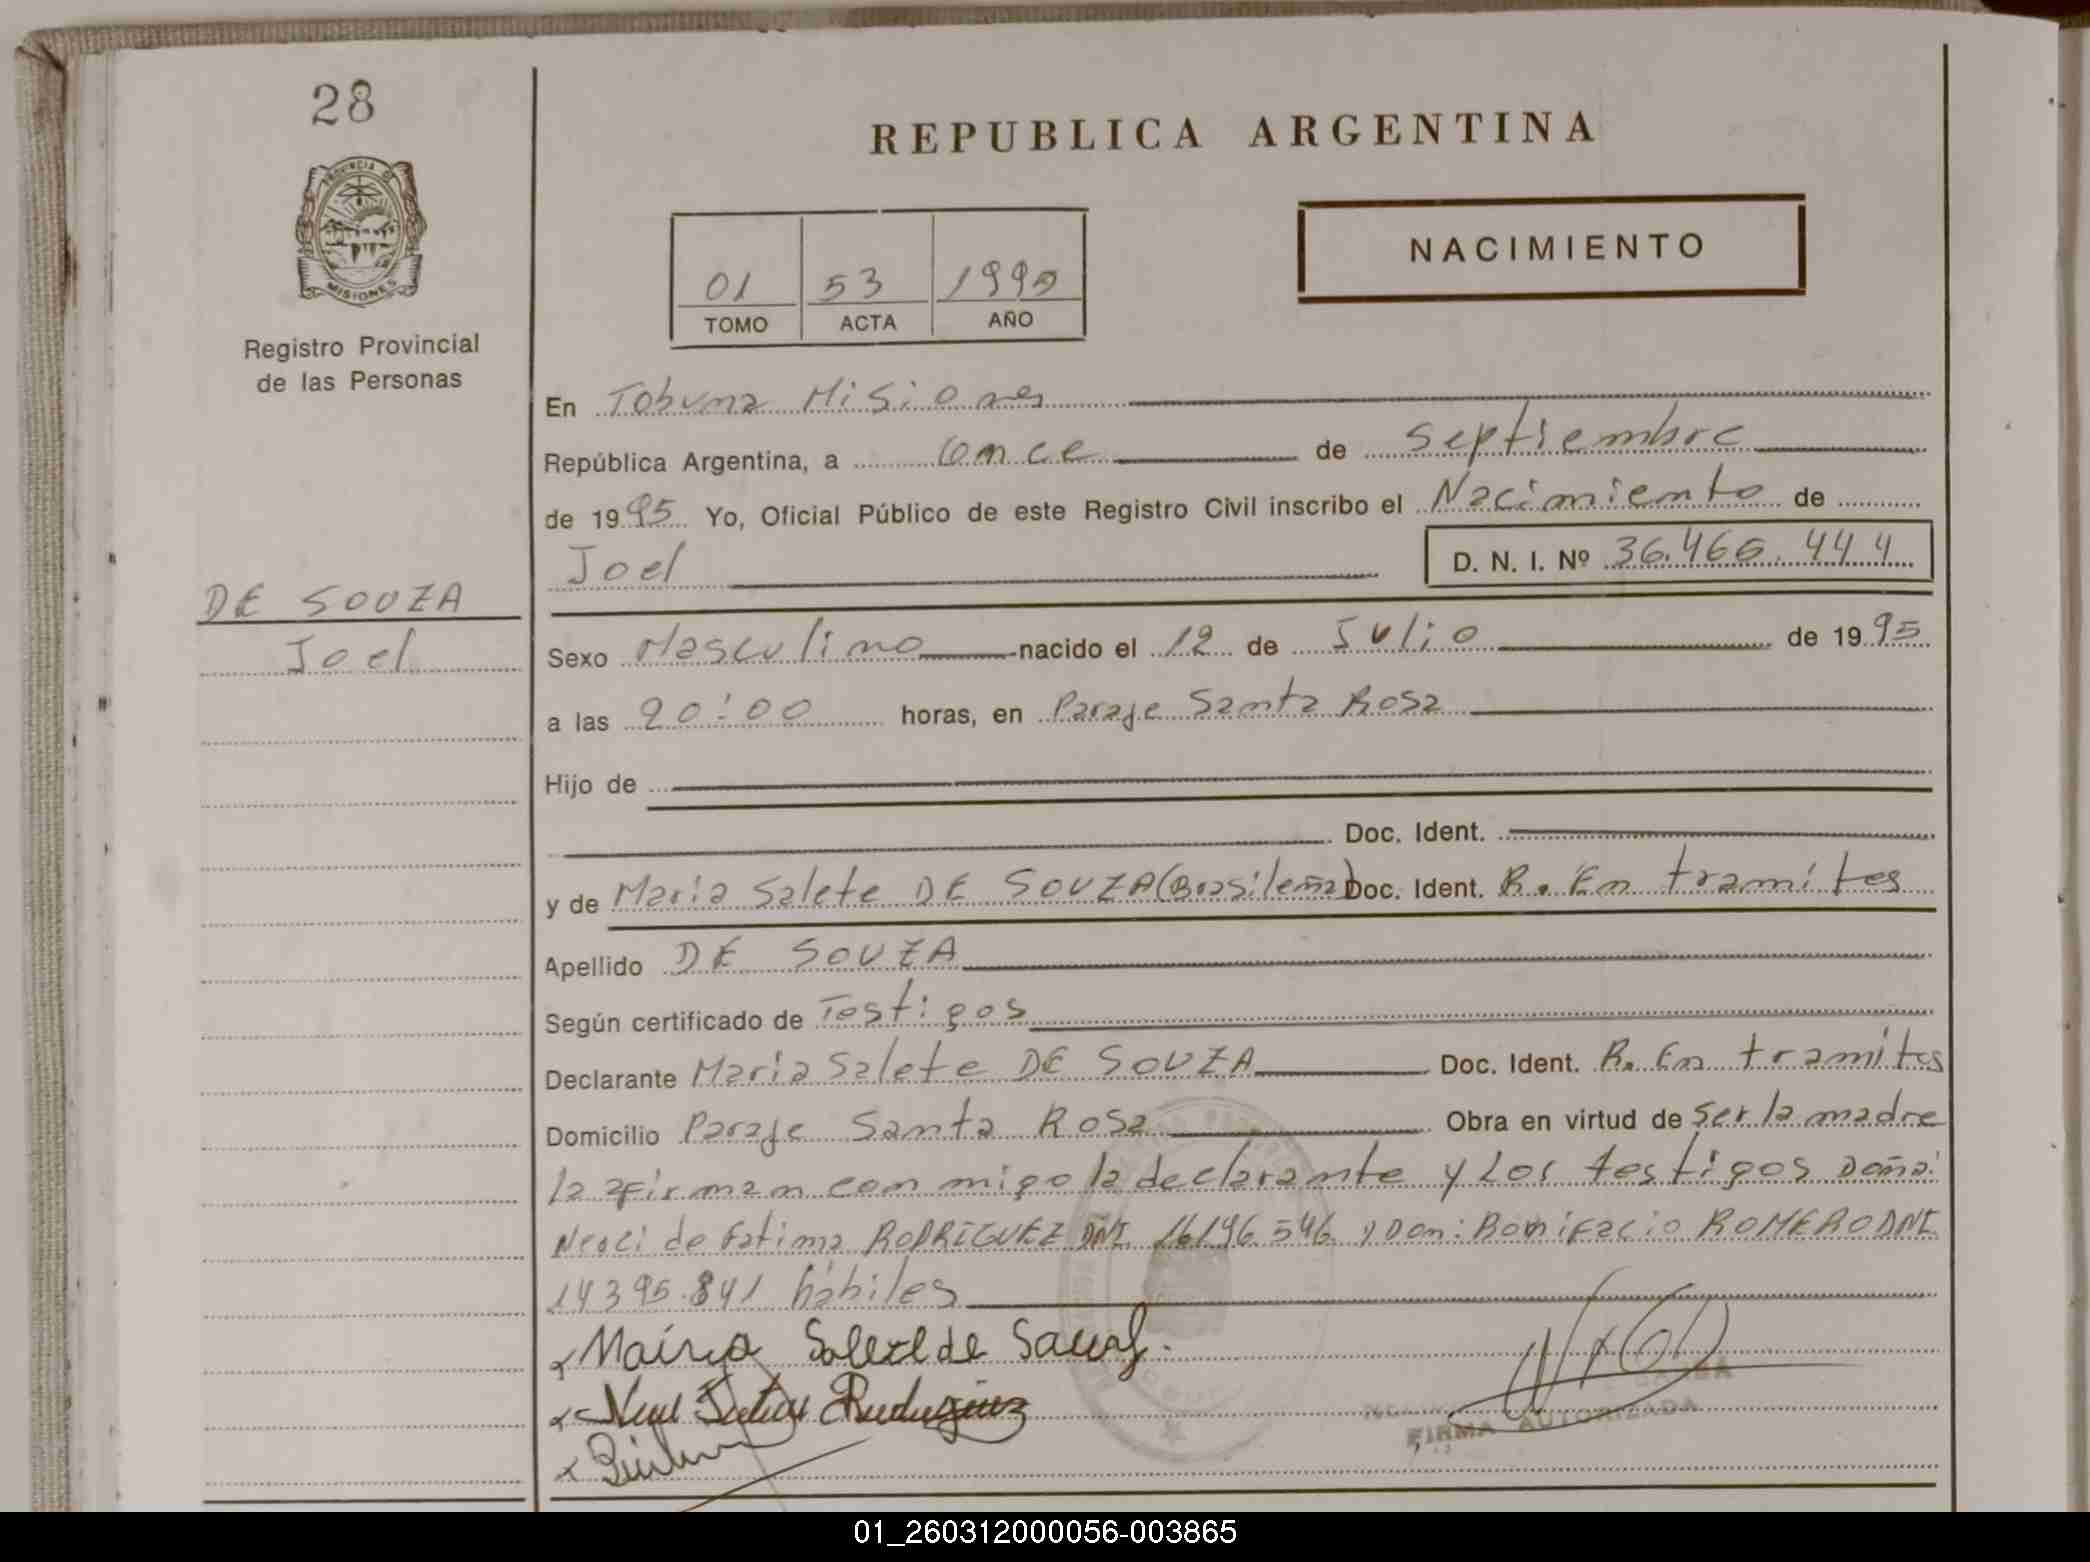 28
REPUBLICA ARGENTINA
PROVINCIA DE
MISIONES
Registro Provincial
de las Personas
01 53 1995
TOMO ACTA AÑO
NACIMIENTO
En Tobuna Misiones
República Argentina, a once de septiembre
de 1995 Yo, Oficial Público de este Registro Civil inscribo el Nacimiento de
Joel D. N. I. Nº 36.466.444
DE SOUZA
Joel
Sexo Masculino nacido el 12 de Julio de 1995
a las 20:00 horas, en Paraje Santa Rosa
Hijo de
Doc. Ident.
y de Maria Salete DE SOUZA (Brasileña) Doc. Ident. R. En tramites
Apellido DE SOUZA
Según certificado de Testigos
Declarante Maria Salete DE SOUZA Doc. Ident. R. En tramites
Domicilio Paraje Santa Rosa Obra en virtud de ser la madre
la afirman con migo la declarante y Los testigos Doña:
Neoci de Fatima RODRIGUEZ DNI 16196546 y Don: Bonifacio ROMERO DNI
14395.841 hábiles
FIRMA AUTORIZADA
01_260312000056-003865